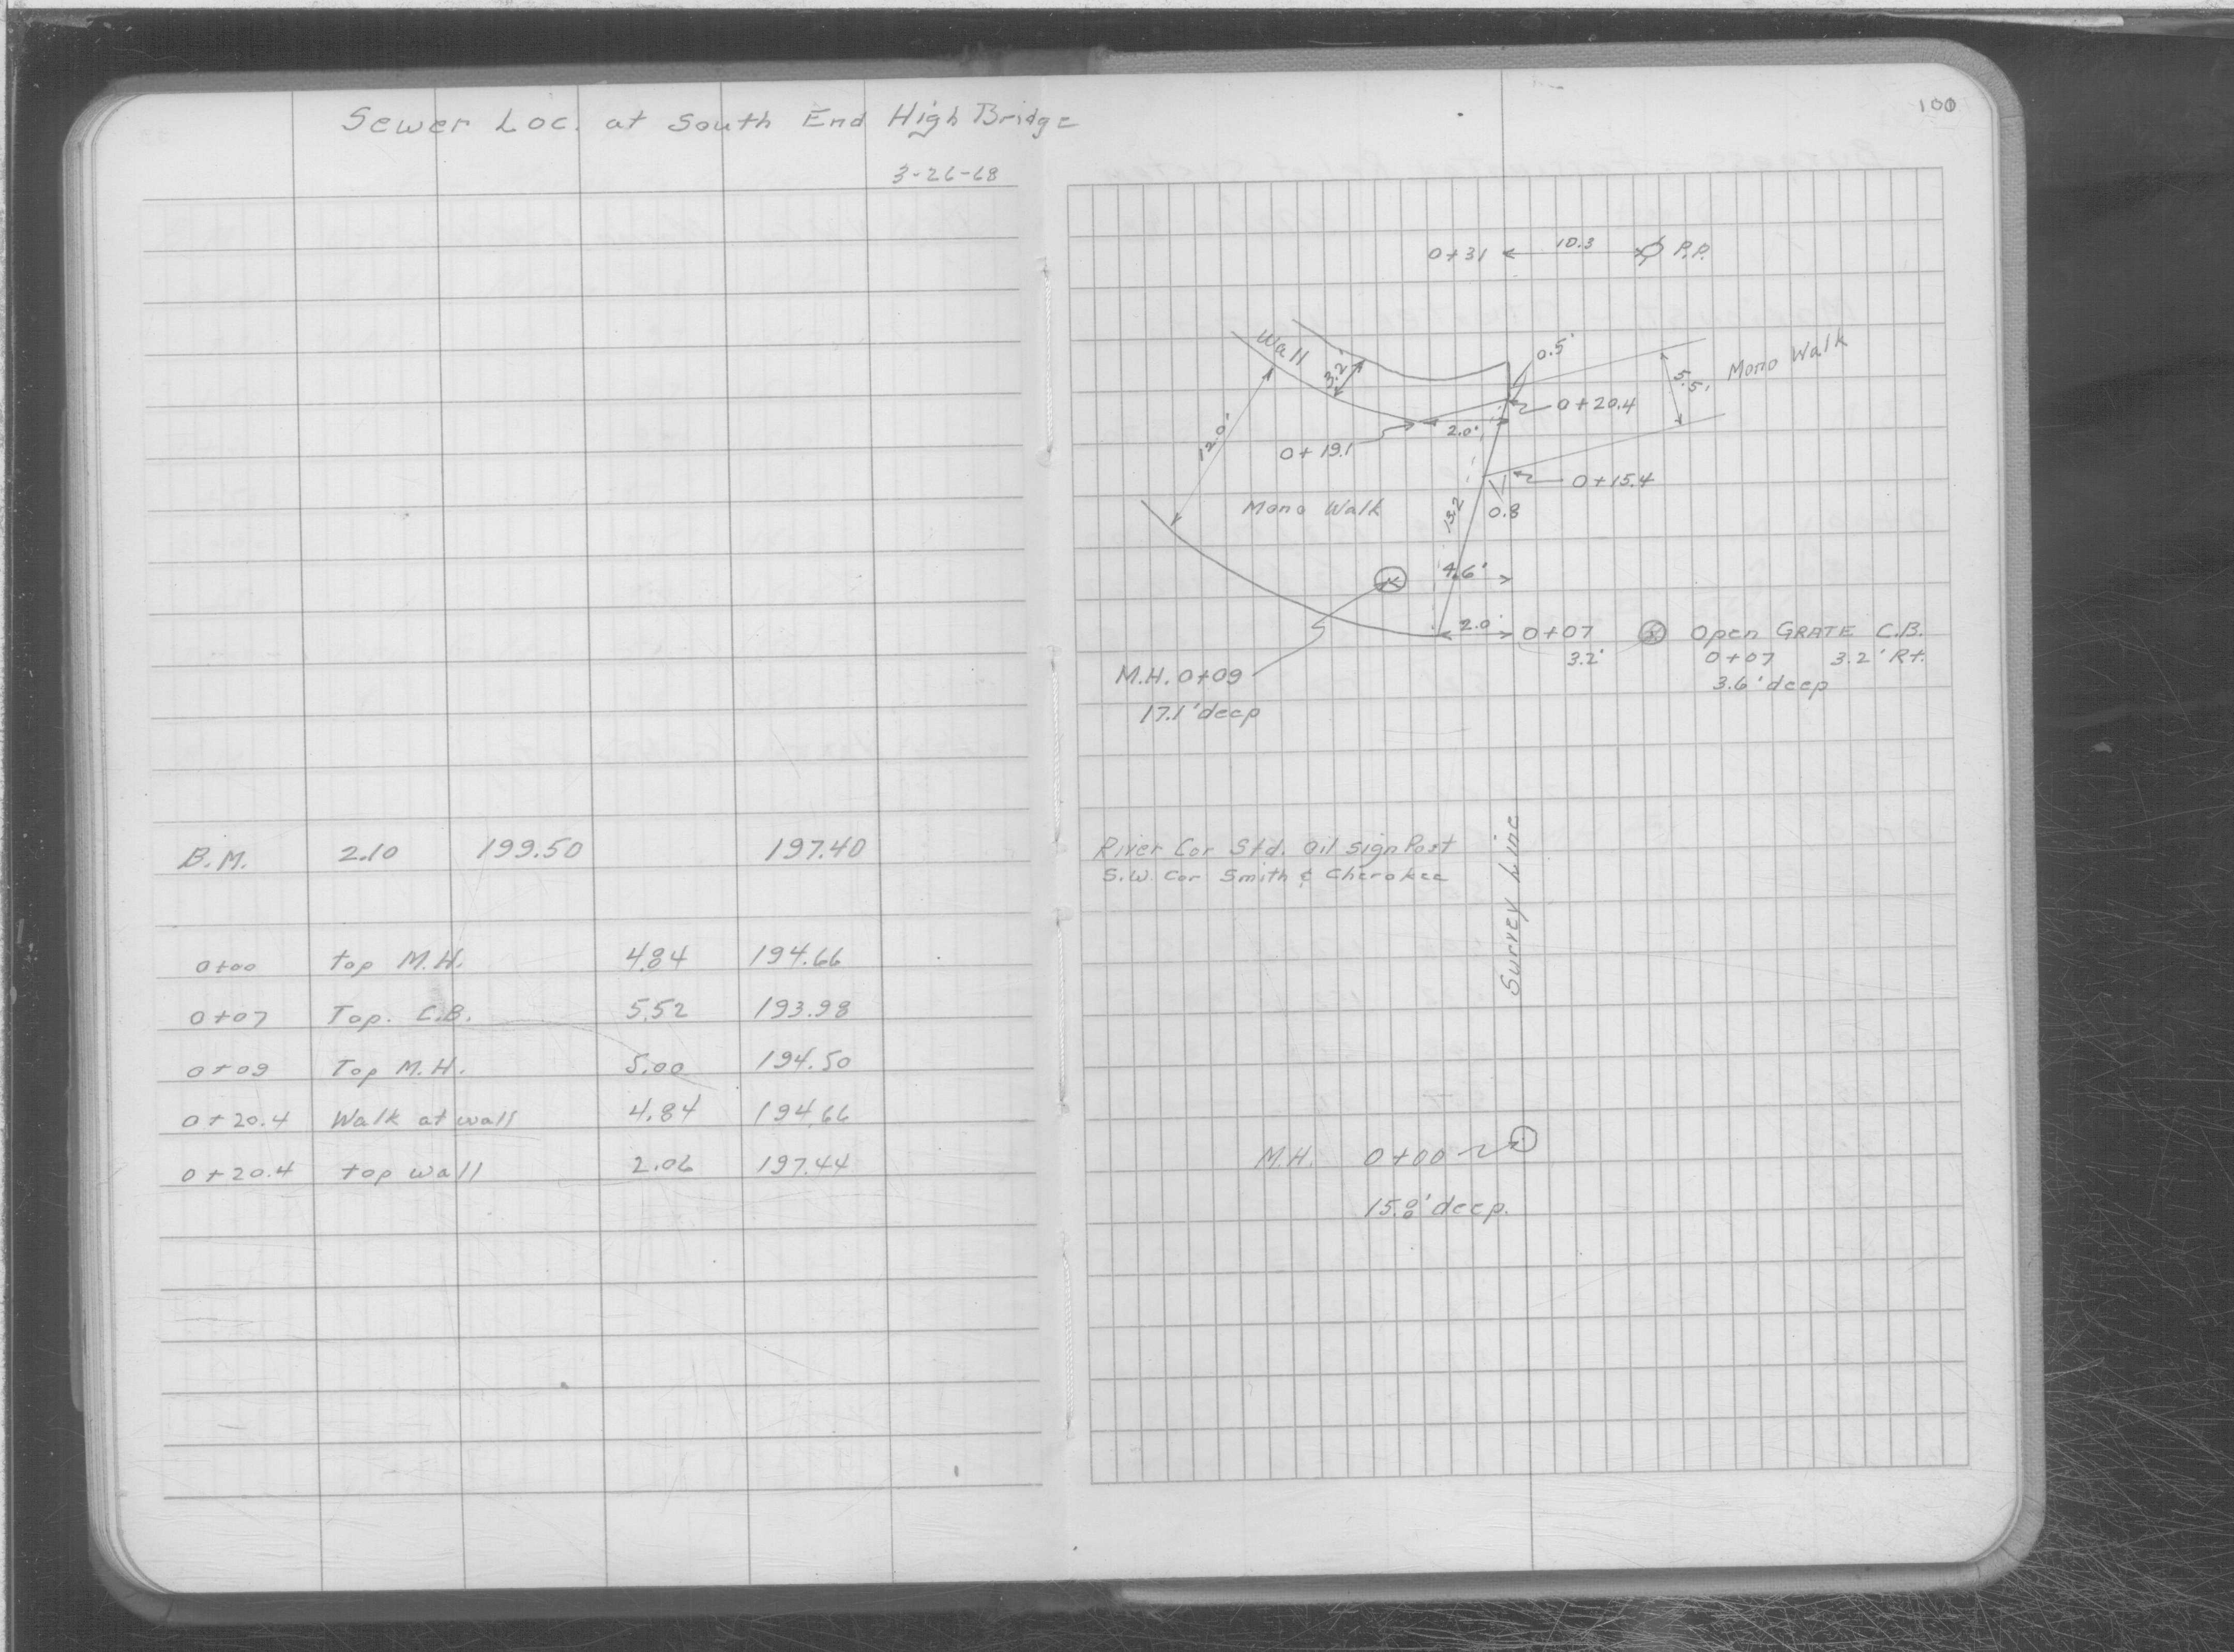 Sewer Loc. at South End High Bridge
3-26-68
B.M. 2.10 199.50 197.40
0+00 top M.H. 4.84 194.66
0+07 Top. C.B. 5.52 193.98
0+09 Top M.H. 5.00 194.50
0+20.4 Walk at wall 4.84 194.66
0+20.4 top wall 2.06 197.44
100
0+31 10.3 P.P.
Wall
3.2'
0.5'
5.5'
Mono Walk
12.0'
0+20.4
2.0'
0+19.1
0+15.4
Mono Walk
13.2
0.8
4.6'
2.0'
0+07
3.2'
Open GRATE C.B.
0+07 3.2' Rt.
3.6' deep
M.H. 0+09
17.1' deep
River Cor Std. Oil sign Post
S.W. Cor Smith & Cherokee
Survey Line
M.H. 0+00
15.8' deep.